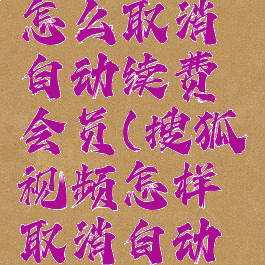 怎么取消
自动续费
会员(搜狐
视频怎样
取消自动